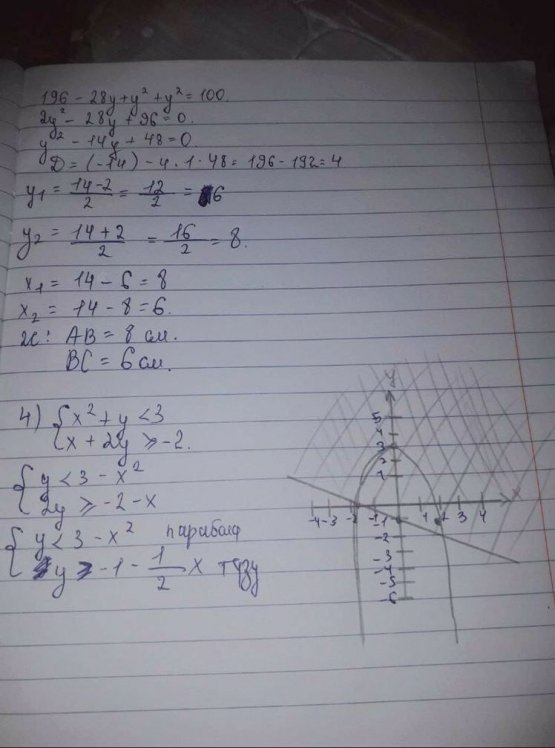 196 - 28y + y² + y² = 100.
2y² - 28y + 96 = 0.
y² - 14y + 48 = 0.
D = (-14) - 4 · 1 · 48 = 196 - 192 = 4
y₁ = (14-2)/2 = 12/2 = 6
y₂ = (14+2)/2 = 16/2 = 8.
x₁ = 14 - 6 = 8
x₂ = 14 - 8 = 6.
Ж: AB = 8 см.
BC = 6 см.
4) { x² + y < 3
x + 2y ≥ -2.
{ y < 3 - x²
2y ≥ -2 - x
{ y < 3 - x² парабола
y ≥ -1 - 1/2 x түзу
y
5
4
3
2
1
-4 -3 -2 -1 1 2 3 4 x
-1
-2
-3
-4
-5
-6